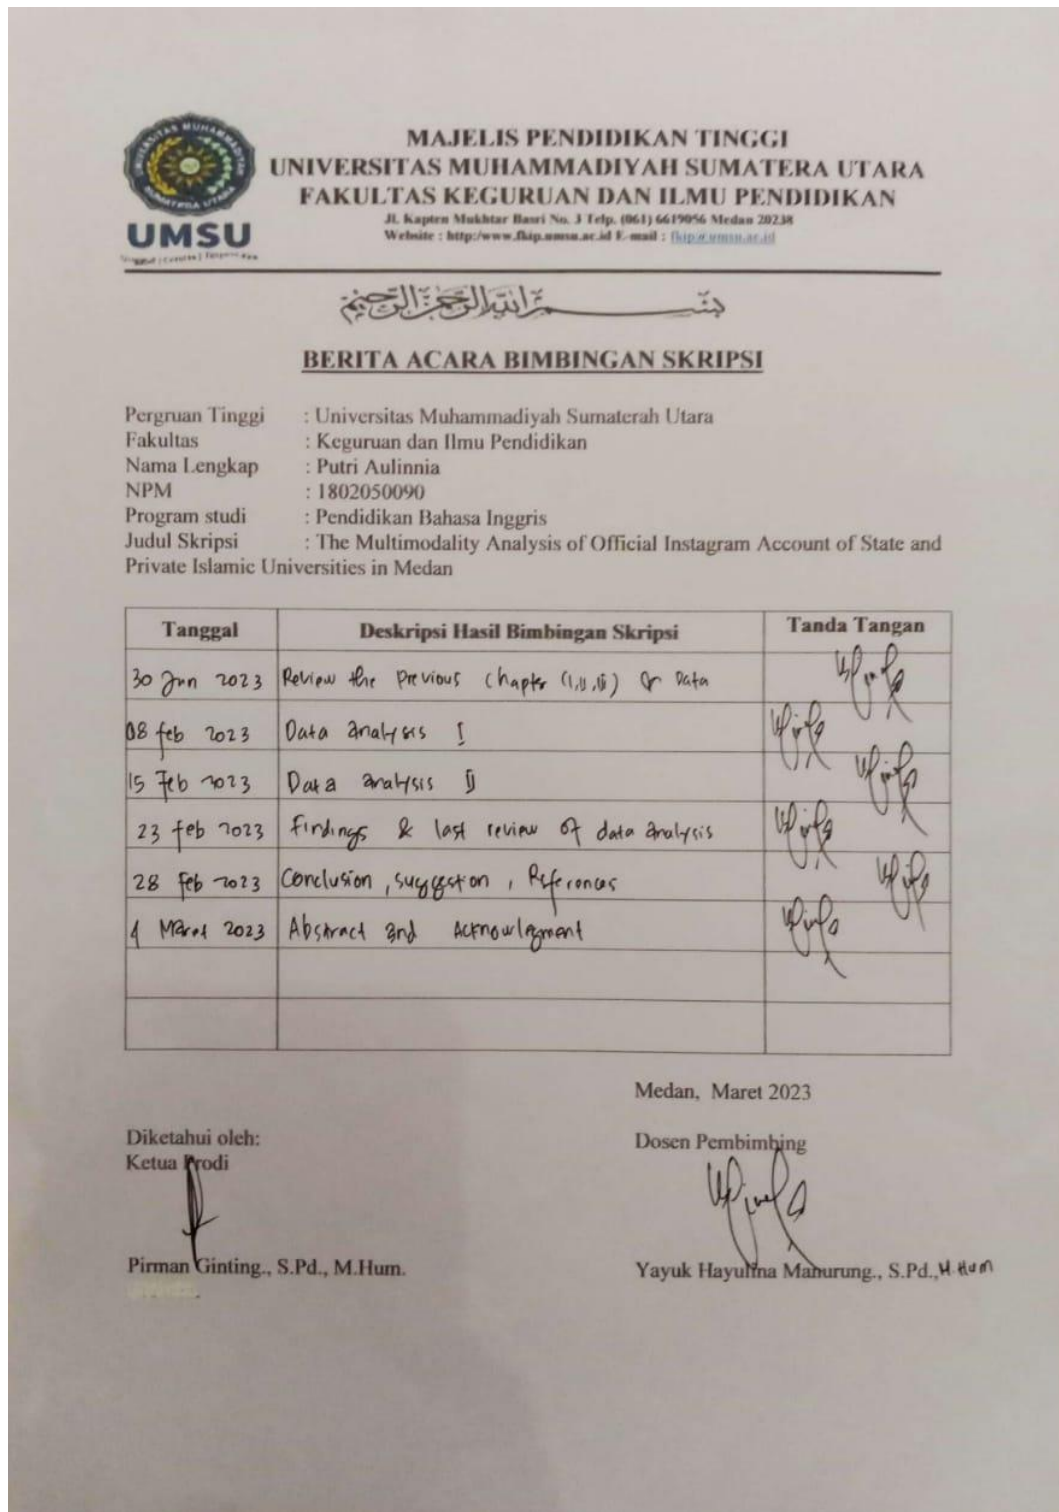 UNIVERSITAS MUHAMMADIYAH
SUMATERA UTARA
UMSU
MAJELIS PENDIDIKAN TINGGI
UNIVERSITAS MUHAMMADIYAH SUMATERA UTARA
FAKULTAS KEGURUAN DAN ILMU PENDIDIKAN
Jl. Kapten Mukhtar Basri No. 3 Telp. (061) 6619056 Medan 20238
Website : http:/www.fkip.umsu.ac.id E-mail : fkip@umsu.ac.id
بسم الله الرحمن الرحيم
BERITA ACARA BIMBINGAN SKRIPSI
Pergruan Tinggi : Universitas Muhammadiyah Sumaterah Utara
Fakultas : Keguruan dan Ilmu Pendidikan
Nama Lengkap : Putri Aulinnia
NPM : 1802050090
Program studi : Pendidikan Bahasa Inggris
Judul Skripsi : The Multimodality Analysis of Official Instagram Account of State and
Private Islamic Universities in Medan
Tanggal Deskripsi Hasil Bimbingan Skripsi Tanda Tangan
30 Jan 2023 Review the previous chapter (I,II,III) & Data
08 feb 2023 Data analysis I
15 Feb 2023 Data analysis II
23 feb 2023 Findings & last review of data analysis
28 feb 2023 Conclusion, suggestion, References
1 Maret 2023 Abstract and Acknowlegment
Medan, Maret 2023
Diketahui oleh:
Ketua Prodi
Dosen Pembimbing
Pirman Ginting., S.Pd., M.Hum.
Yayuk Hayulina Manurung., S.Pd., M.Hum